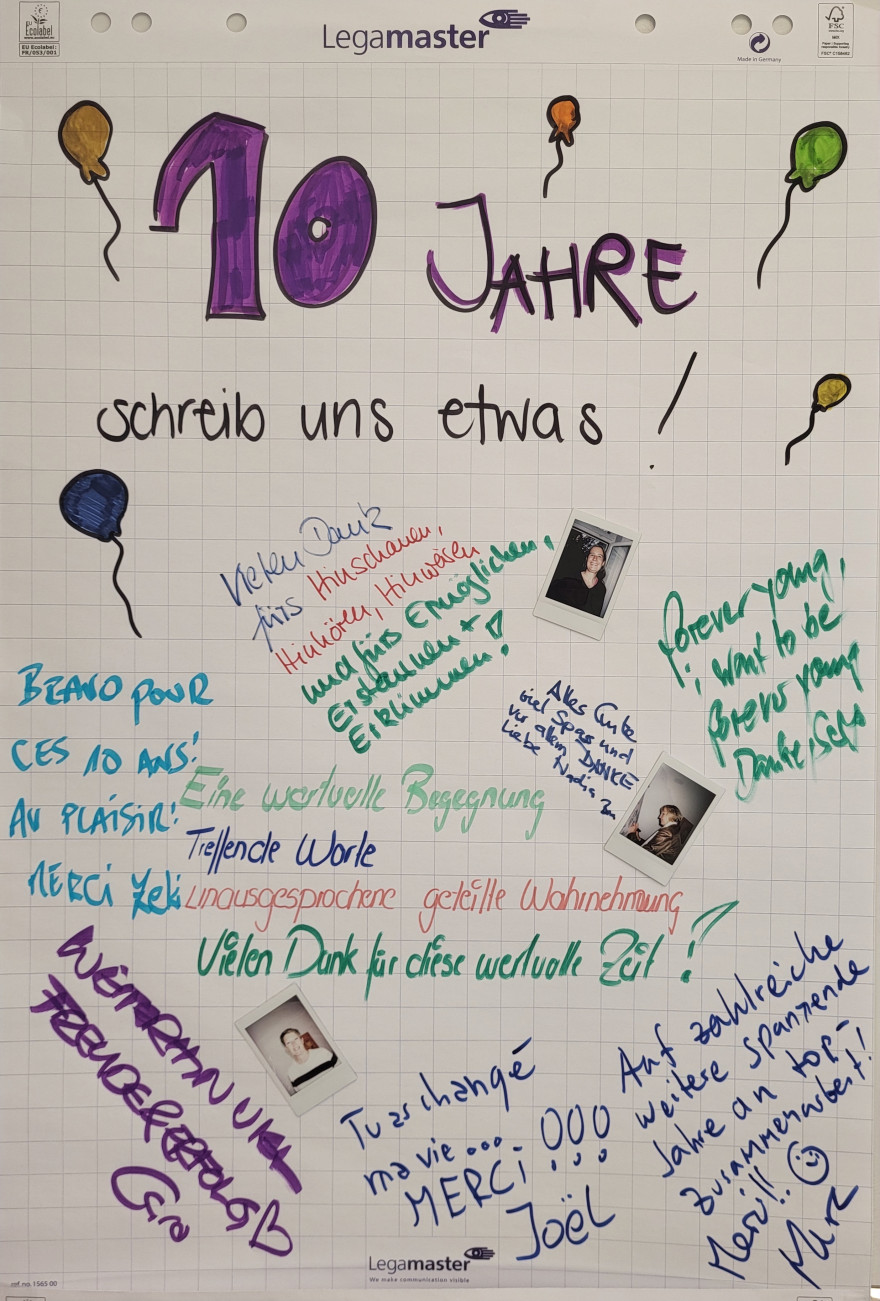 EU Ecolabel
www.ecolabel.eu
EU Ecolabel:
FR/053/001
Legamaster
Made in Germany
FSC
MIX
10 JAHRE
schreib uns etwas!
Vielen Dank
fürs Hinschauen,
Hinhören, Hinweisen
und fürs Ermöglichen,
Erstemmen +
Erklimmen!
forever young,
i want to be
forever young
Danke,
Alles Gute
viel Spas und
vor allem DANKE
Liebe Nadia
BRAVO POUR
CES 10 ANS!
AU PLAISIR!
MERCI Zeki
Eine wertvolle Begegnung
Treffende Worte
unausgesprochene geteilte Wahrnehmung
Vielen Dank für diese wertvolle Zeit!
WEITERHIN VIEL
FREUDE & ERFOLG ♡
Tu as changé
ma vie...
MERCI !!!
Joël
Auf zahlreiche
weitere spannende
Jahre an top-
Zusammenarbeit!
Merci!! ☺
Legamaster
We make communication visible
ref.no. 1565 00